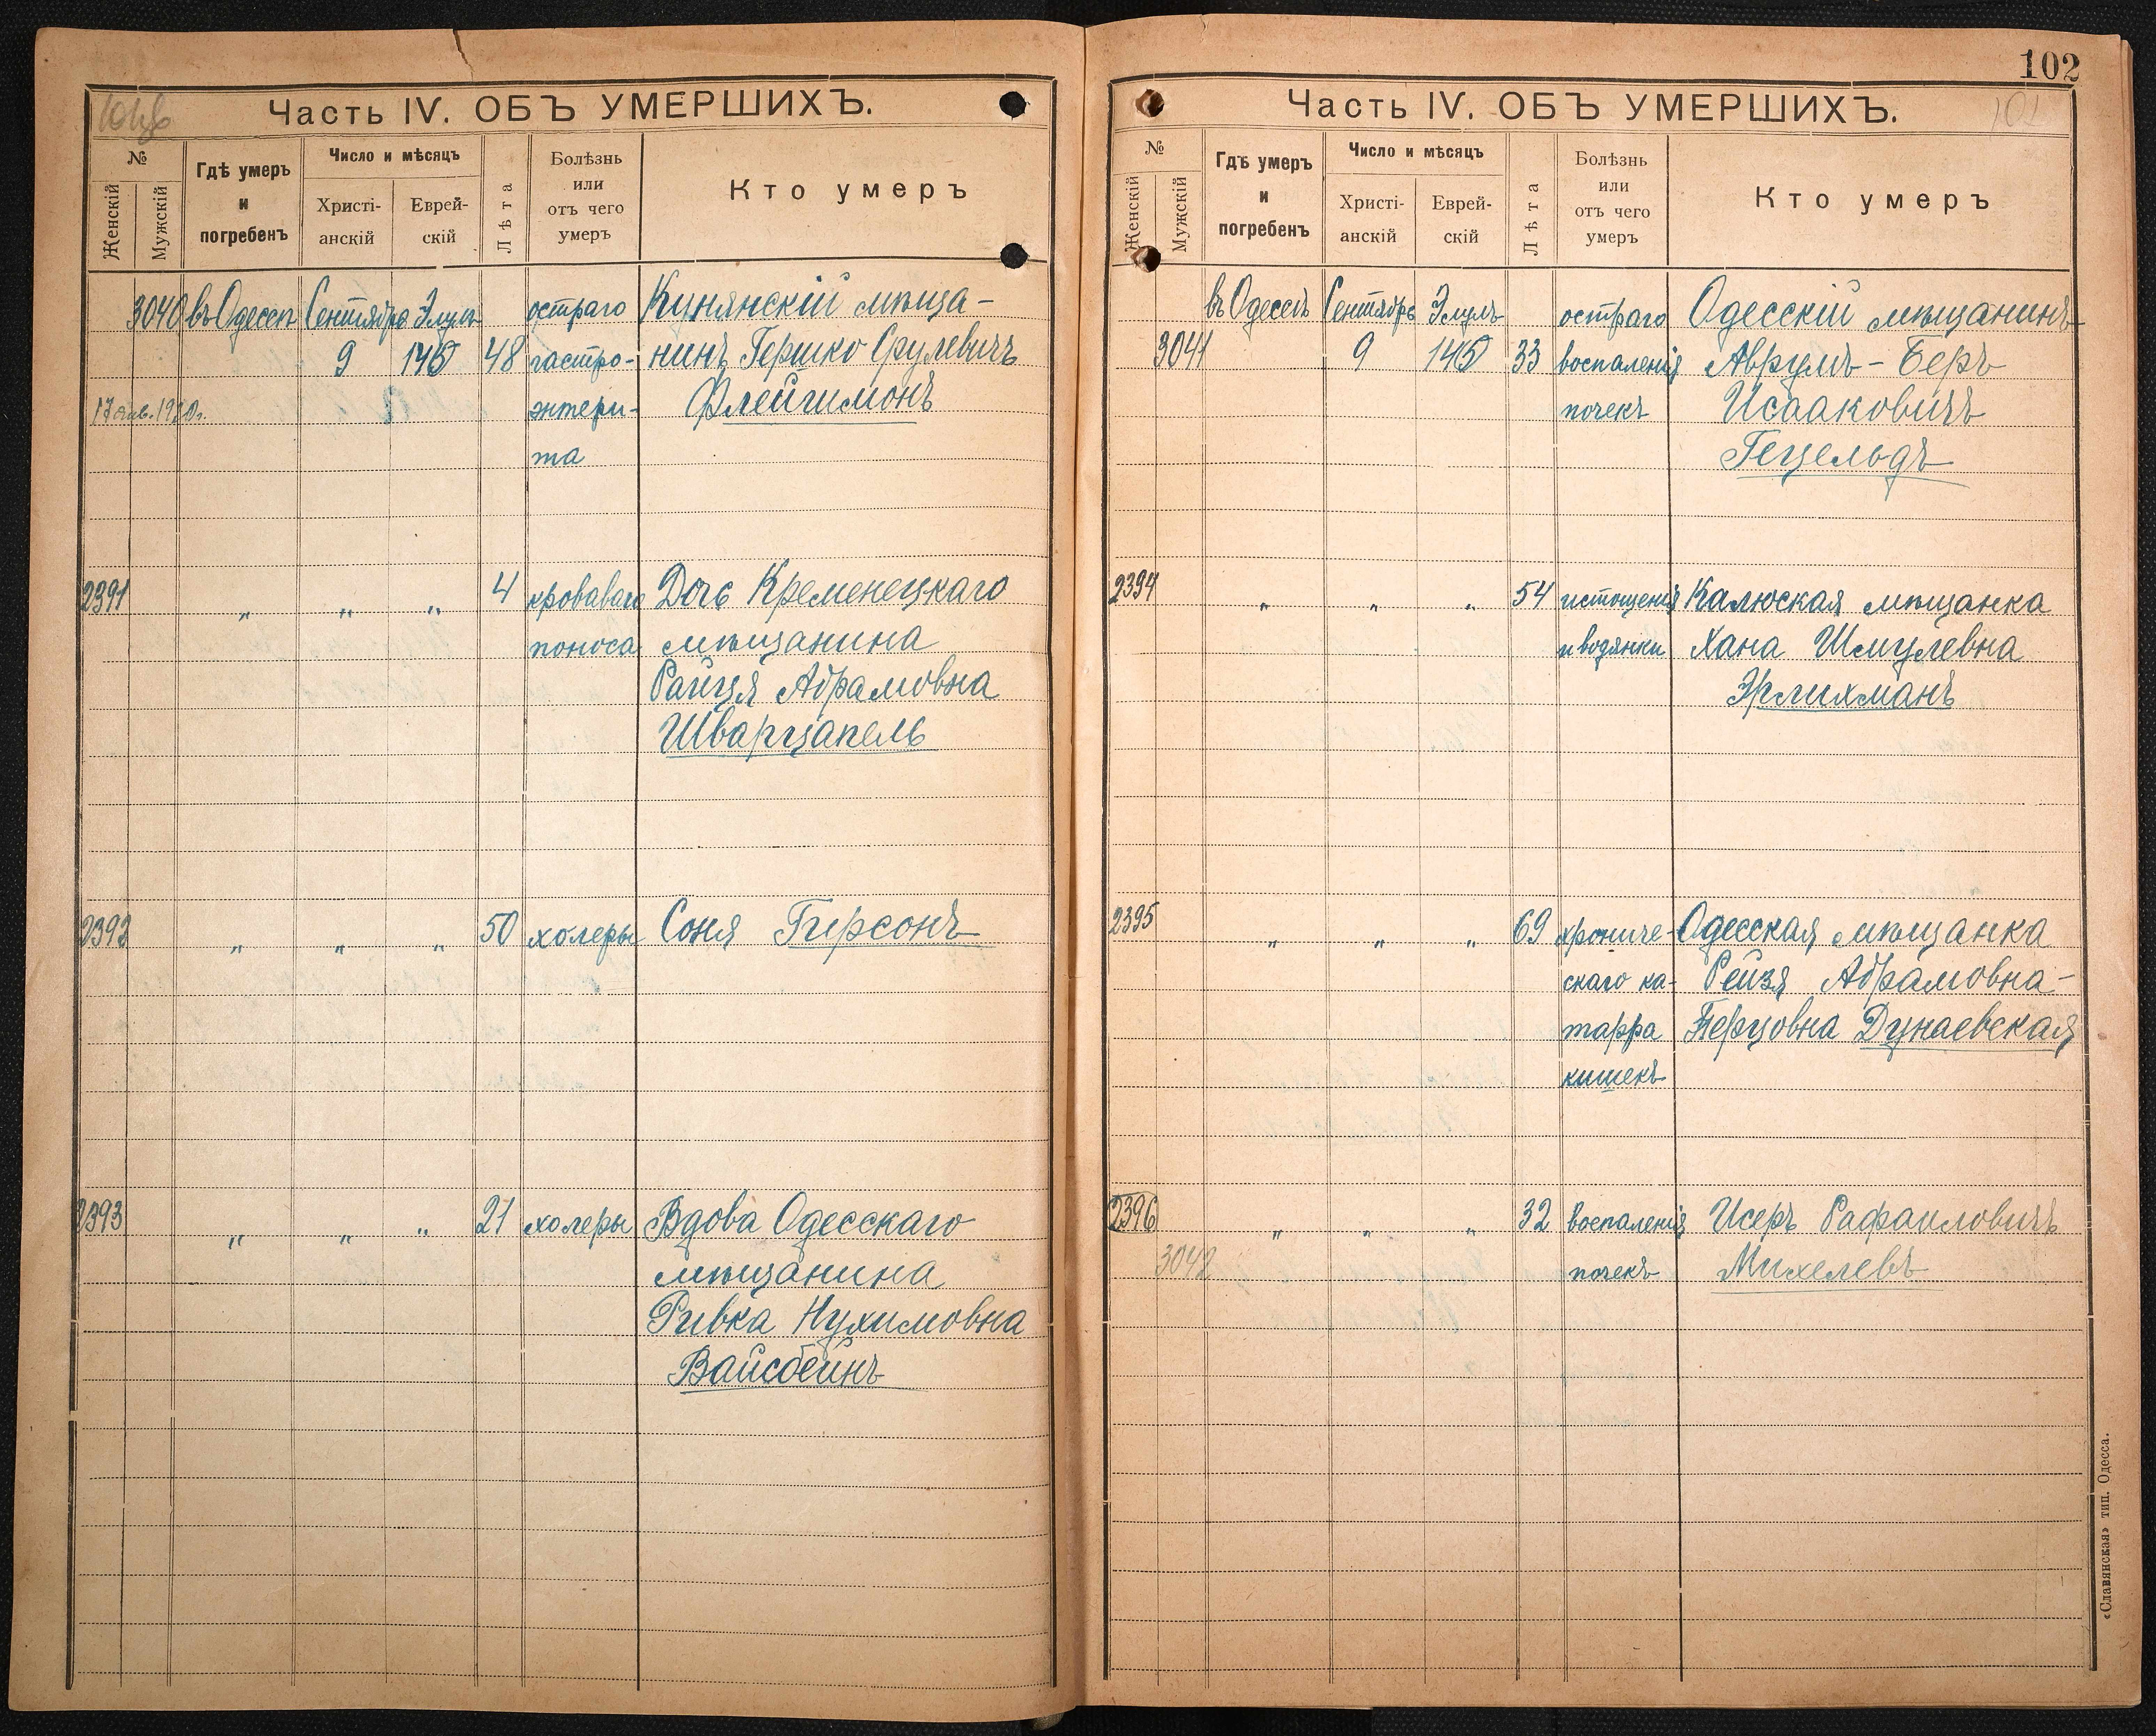 101об
Часть IV. ОБЪ УМЕРШИХЪ.
№
Женскій
Мужскій
Гдѣ умеръ
и
погребенъ
Число и мѣсяцъ
Христі-
анскій
Еврей-
скій
Лѣта
Болѣзнь
или
отъ чего
умеръ
Кто умеръ
3040 въ Одессѣ Сентября Элулъ остраго Кинянскій мѣща-
9 14 48 гастро- нинъ Гершко Срулевичъ
17 янв. 1920г. энтери- Флейгимонъ
та
2391 „ „ „ 4 кроваваго Дочь Кременецкаго
поноса мѣщанина
Райця Абрамовна
Шварцапель
2392 „ „ „ 50 холеры Соня Гирсонъ
2393 „ „ „ 21 холеры Вдова Одесскаго
мѣщанина
Ривка Нухимовна
Вайсбейнъ
102
102
Часть IV. ОБЪ УМЕРШИХЪ.
№
Женскій
Мужскій
Гдѣ умеръ
и
погребенъ
Число и мѣсяцъ
Христі-
анскій
Еврей-
скій
Лѣта
Болѣзнь
или
отъ чего
умеръ
Кто умеръ
въ Одессѣ Сентябрь Элулъ остраго Одесскій мѣщанинъ
3041 9 33 воспаленія Аврумъ-Беръ
почекъ Исааковичъ
Гецельдъ
2394 „ „ „ 54 истощенія Калюская мѣщанка
и водянки Хана Шмулевна
Эрлихманъ
2395 „ „ „ 69 хрониче- Одесская мѣщанка
скаго ка- Рейзя Абрамовна-
тарра Перцовна Дунаевская
кишекъ
2396 „ „ „ 32 воспаленія Исеръ Рафаиловичъ
3042 почекъ Михелевъ
«Славянская» тип. Одесса.